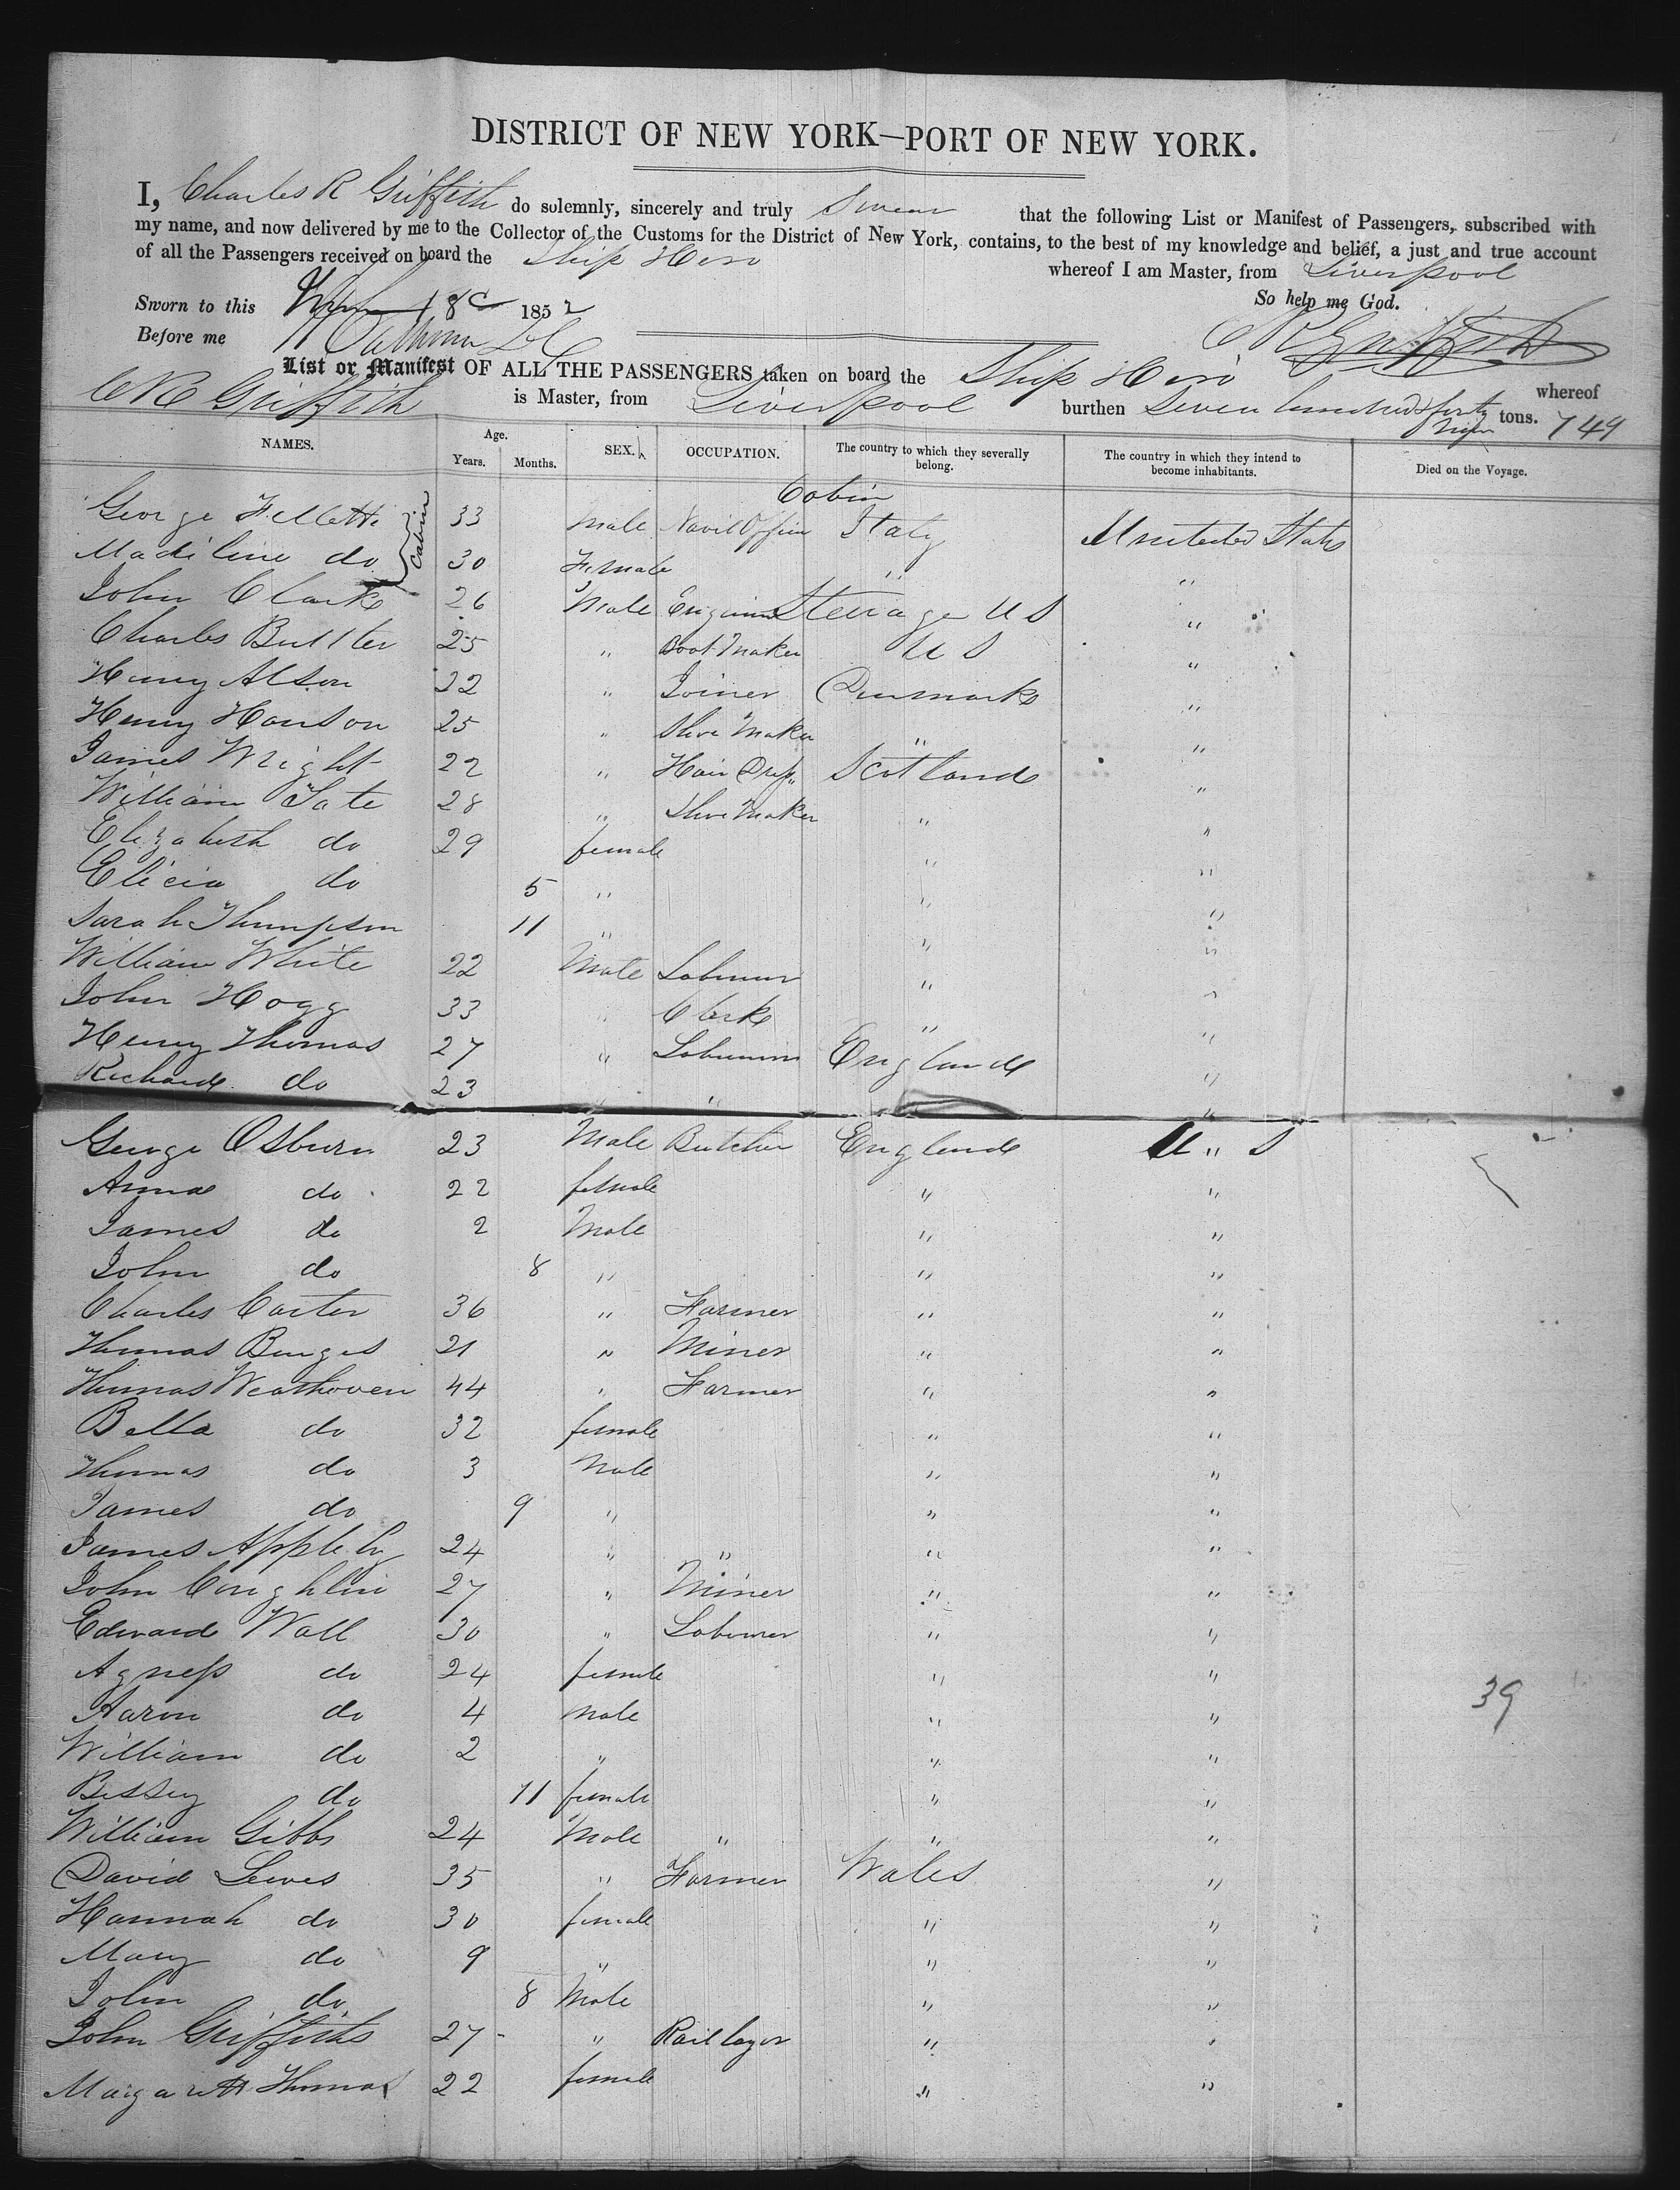 DISTRICT OF NEW YORK—PORT OF NEW YORK.
I, Charles R Griffith do solemnly, sincerely and truly Swear that the following List or Manifest of Passengers, subscribed with
my name, and now delivered by me to the Collector of the Customs for the District of New York, contains, to the best of my knowledge and belief, a just and true account
of all the Passengers received on board the Ship Hero whereof I am Master, from Liverpool
Sworn to this 8 1852 So help me God.
Before me C R Griffith
List or Manifest OF ALL THE PASSENGERS taken on board the Ship Hero whereof
C R Griffith is Master, from Liverpool burthen Seven hundred & forty nine tons. 749
NAMES. Age. Years. Months. SEX. OCCUPATION. The country to which they severally belong. The country in which they intend to become inhabitants. Died on the Voyage.
Cabin
George 33 Male Italy United States
Madeline do 30 Female " "
Cabin
John Clarke 26 Male Engineer Steerage U S "
Charles Buttler 25 " Boot Maker U S "
Henry Alson 22 " Joiner Denmark "
Henry Hanson 25 " Shoe Maker " "
James Wright 22 " Hair Dresr Scotland "
William Tate 28 " Shoe Maker " "
Elizabeth do 29 female " "
Elicia do 5 " " "
Sarah Thumpson 11 " " "
William White 22 Male Labourer " "
John Hogg 33 " Clerk " "
Henry Thomas 27 " Labourer England "
Richard do 23 " " "
George Osburn 23 Male Butcher England U " S
Anna do 22 female " "
James do 2 Male " "
John do 8 " " "
Charles Carter 36 " Farmer " "
Thomas Burges 21 " Miner " "
Thomas Weathoven 44 " Farmer " "
Bella do 32 female " "
Thomas do 3 Male " "
James do 9 " " "
James Appleby 24 " " " "
John Coughlin 27 " Miner " "
Edward Wall 30 " Labourer " "
Agness do 24 female " "
Aaron do 4 male " "
39
William do 2 " " "
Bessey do 11 female " "
William Gibbs 24 Male " " "
David Lewes 35 " Farmer Wales "
Hannah do 30 female " "
Mary do 9 " " "
John do 8 Male " "
John Griffiths 27 " Rail layer " "
Margarett Thomas 22 female " "